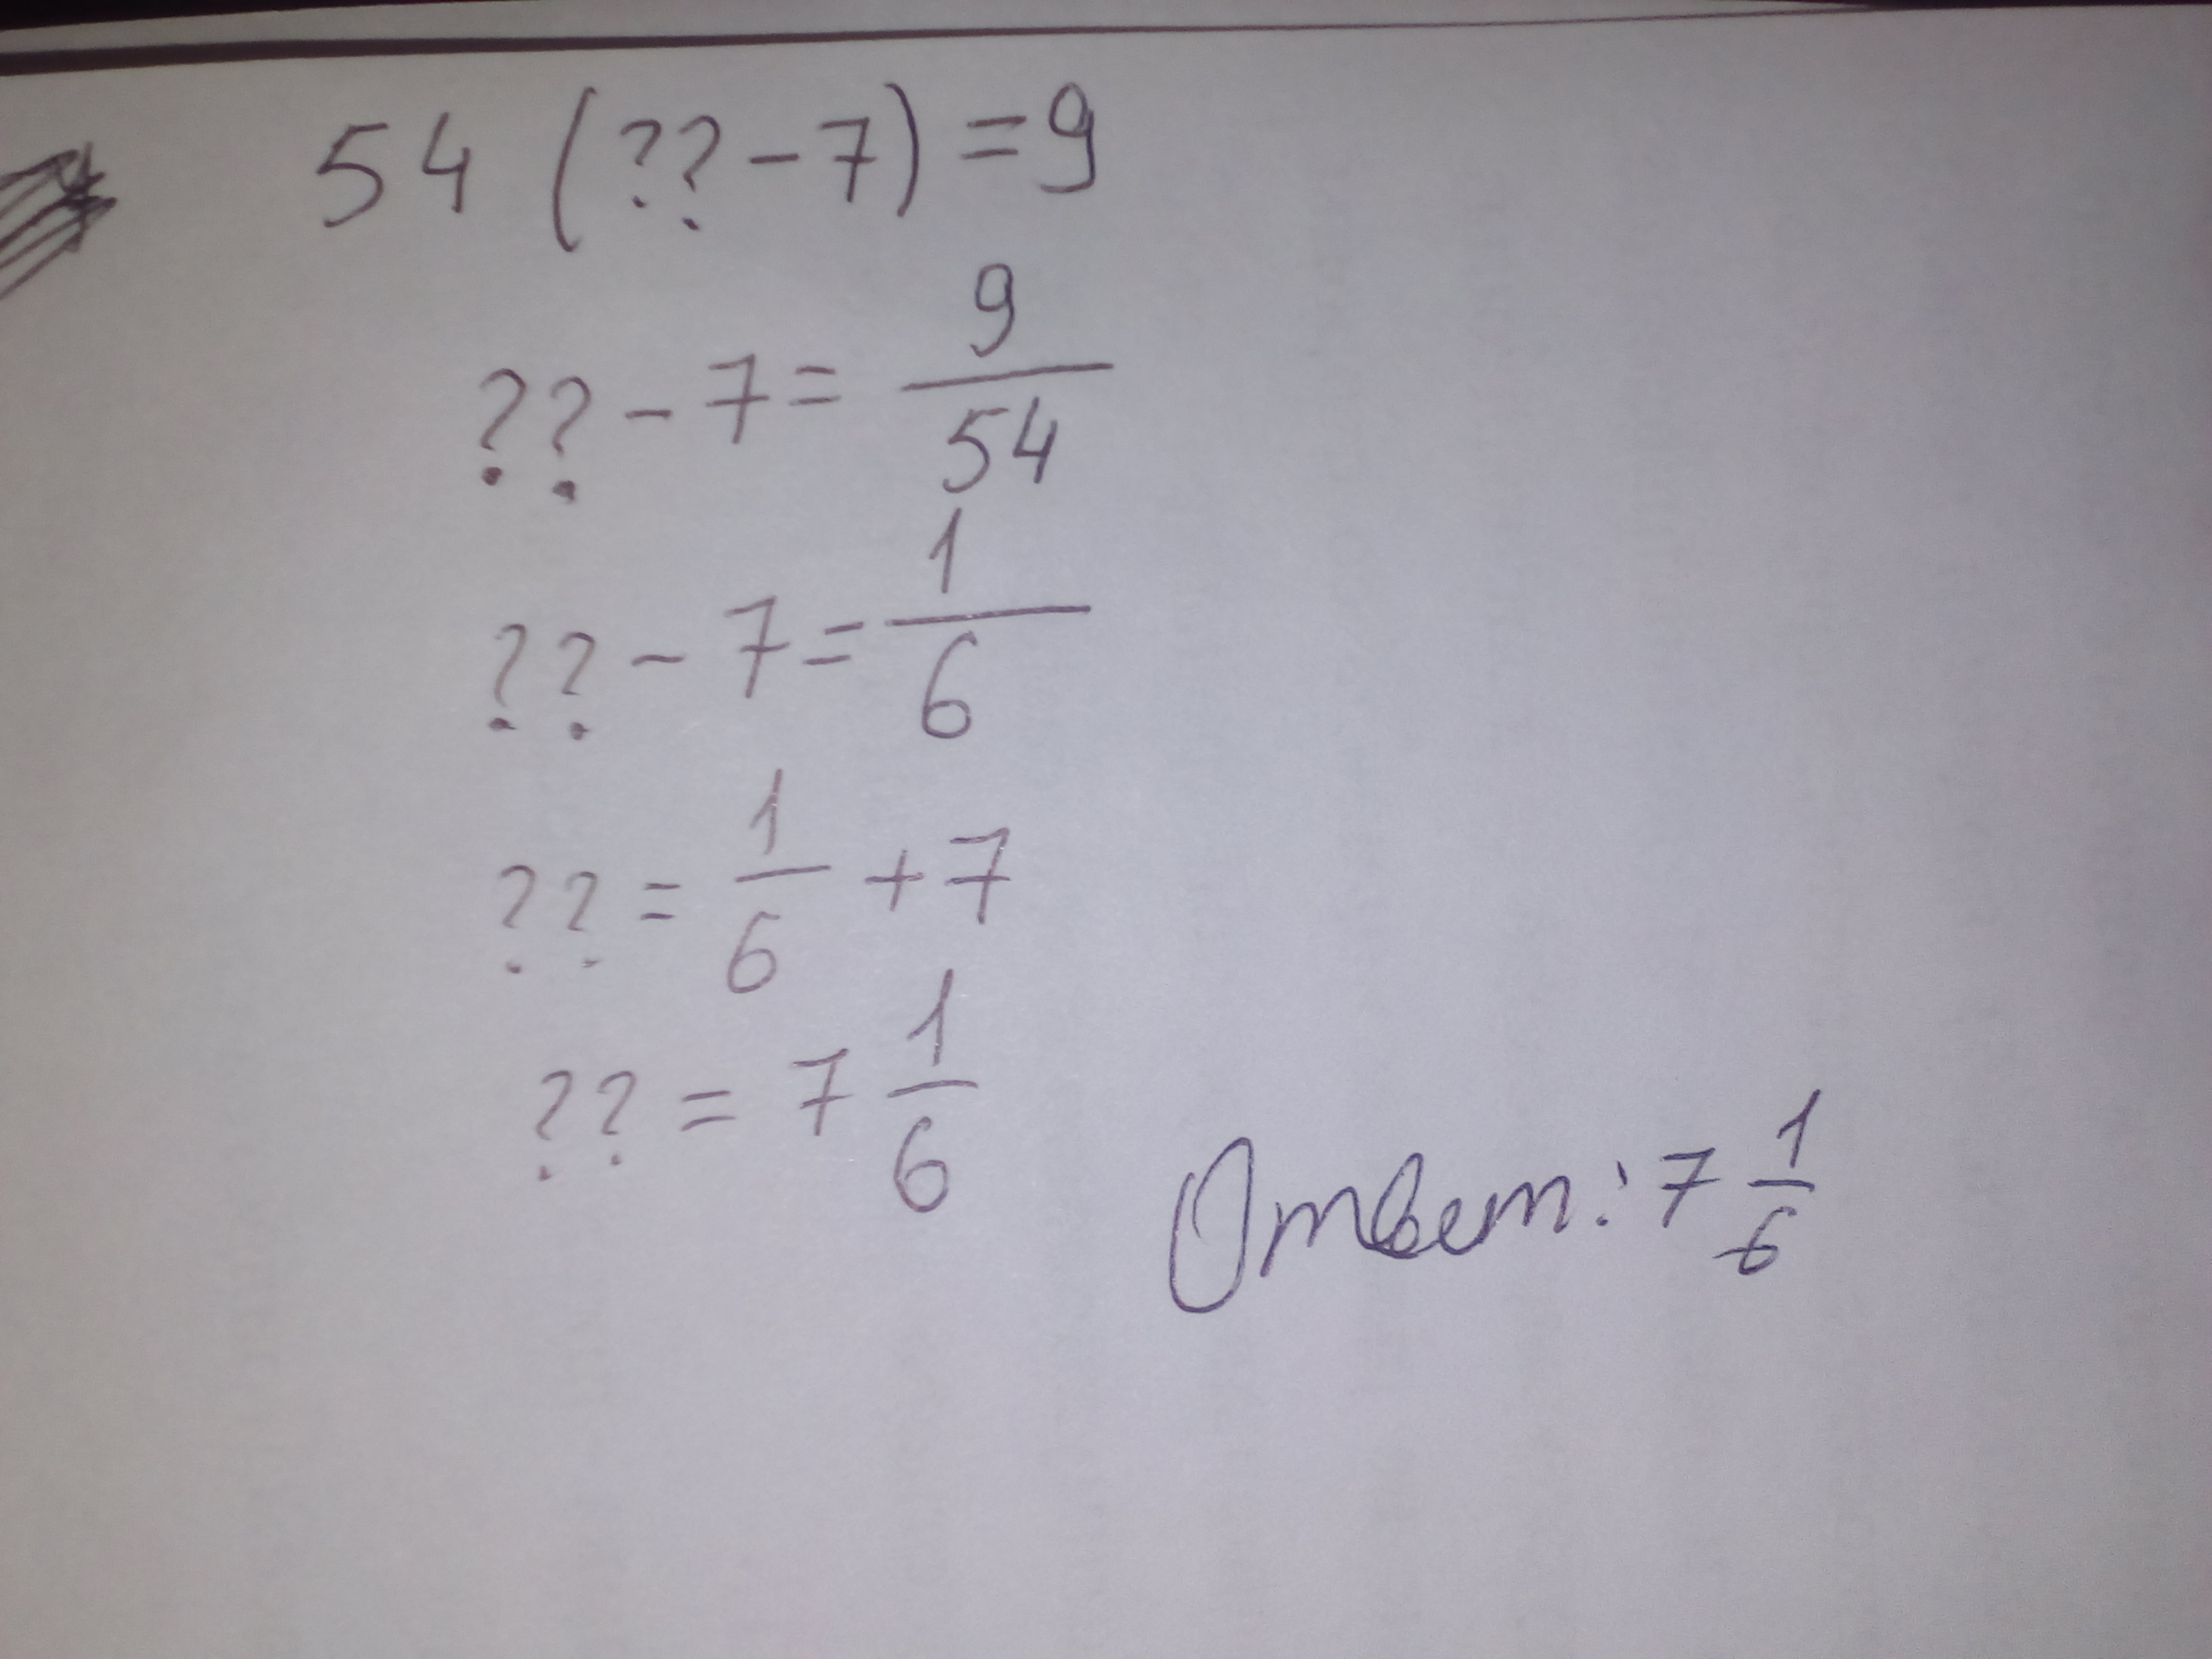 54 (?? - 7) = 9
?? - 7 = 9/54
?? - 7 = 1/6
?? = 1/6 + 7
?? = 7 1/6
Ответ: 7 1/6